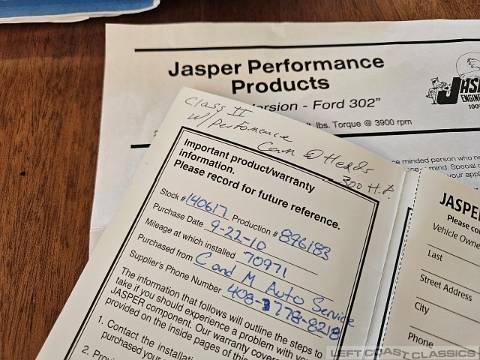 Jasper Performance
Products
ersion - Ford 302"
lbs. Torque @ 3900 rpm
JAS
ENGIN
minded person who ne
Class II
w/ Performence
Cam @ Heads
300 H.P.
Important product/warranty
information.
Please record for future reference.
Stock # 140617 Production # 896183
Purchase Date 9-22-10
Mileage at which installed 70971
Purchased from C and M Auto Service
Supplier's Phone Number 408-378-8218
The information that follows will outline the steps to
take if you should experience a problem with yo
JASPER component. Our warranty cover
provided on the inside pages of this
1. Contact the installa
purchased your
2. Provi
JASPE
Please co
Vehicle Owne
Last
Street Address
City
Phone
LEFT COAST CLASSICS